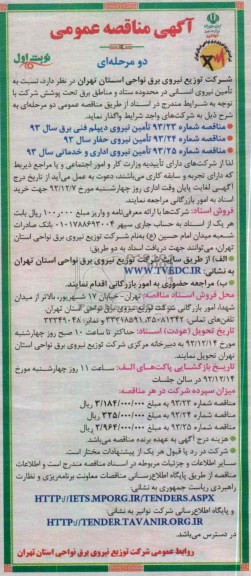 آگهی مناقصه عمومی
دو مرحله‌ای
نوبت اول
شرکت توزیع نیروی برق نواحی استان تهران در نظر دارد، نسبت به
تأمین نیروی انسانی در محدوده ستاد و مناطق برق تحت پوشش شرکت با
توجه به شرایط مندرج در اسناد از طریق مناقصه عمومی دو مرحله‌ای به
شرح ذیل به شرکت‌های واجد شرایط واگذار نماید.
• مناقصه شماره ۹۳/۲۳ تأمین نیروی دیپلم فنی برق سال ۹۳
• مناقصه شماره ۹۳/۲۴ تأمین نیروی حفار سال ۹۳
• مناقصه شماره ۹۳/۲۵ تأمین نیروی اداری و خدماتی سال ۹۳
لذا از شرکت‌های دارای تأییدیه وزارت کار و امور اجتماعی و یا مراجع ذیربط
که دارای تجربه و سابقه کاری می‌باشند، دعوت به عمل می‌آید از تاریخ درج
آگهی لغایت پایان وقت اداری روز چهارشنبه مورخ ۹۲/۱۲/۷ جهت خرید
اسناد به امور بازرگانی مراجعه نمایند.
فروش اسناد: شرکت‌ها با ارائه معرفی‌نامه و واریز مبلغ ۱۰۰٫۰۰۰ ریال بابت
هر یک از اسناد به حساب جاری سپهر ۰۱۰۱۷۸۸۶۹۳۰۰۴ بانک صادرات
شعبه میدان امام حسین (ع) بنام شرکت توزیع نیروی برق نواحی استان
تهران، می‌توانند جهت دریافت اسناد به دو طریق:
• الف) از طریق سایت شرکت توزیع نیروی برق نواحی استان تهران
به نشانی: WWW.TVEDC.IR
• ب) مراجعه حضوری به امور بازرگانی اقدام نمایند.
محل فروش اسناد مناقصه: تهران- خیابان ۱۷ شهریور، بالاتر از میدان
شهدا، امور بازرگانی شرکت توزیع نیروی برق نواحی استان تهران.
تاریخ تحویل (عودت) اسناد: حداکثر تا ساعت ۱۰ صبح روز چهارشنبه
مورخ ۹۲/۱۲/۱۴ به دبیرخانه مرکزی شرکت توزیع نیروی برق نواحی استان
تهران تحویل نمایند.
تاریخ بازگشایی پاکت‌های الف: ساعت ۱۱ روز چهارشنبه مورخ
۹۲/۱۲/۱۴ در سالن جلسات
میزان سپرده شرکت در هر مناقصه:
مناقصه شماره ۹۳/۲۳ به مبلغ ۳/۱۸۴/۰۰۰/۰۰۰ ریال
مناقصه شماره ۹۳/۲۴ به مبلغ ۳۲۵/۰۰۰/۰۰۰ ریال
مناقصه شماره ۹۳/۲۵ به مبلغ ۲/۹۶۴/۰۰۰/۰۰۰ ریال
• هزینه درج آگهی به عهده برنده مناقصه می‌باشد.
• شرکت در رد یا قبول هر یک از پیشنهادات مختار است.
سایر اطلاعات و جزئیات مربوطه در اسناد مناقصه مندرج است و اطلاعات
مناقصه از طریق پایگاه اطلاع‌رسانی مناقصات معاونت برنامه‌ریزی و نظارت
راهبردی ریاست جمهوری به نشانی:
HTTP://IETS.MPORG.IR/TENDERS.ASPX
و پایگاه اطلاع‌رسانی شرکت توانیر به نشانی:
HTTP://TENDER.TAVANIR.ORG.IR
در دسترس می‌باشد.
روابط عمومی شرکت توزیع نیروی برق نواحی استان تهران